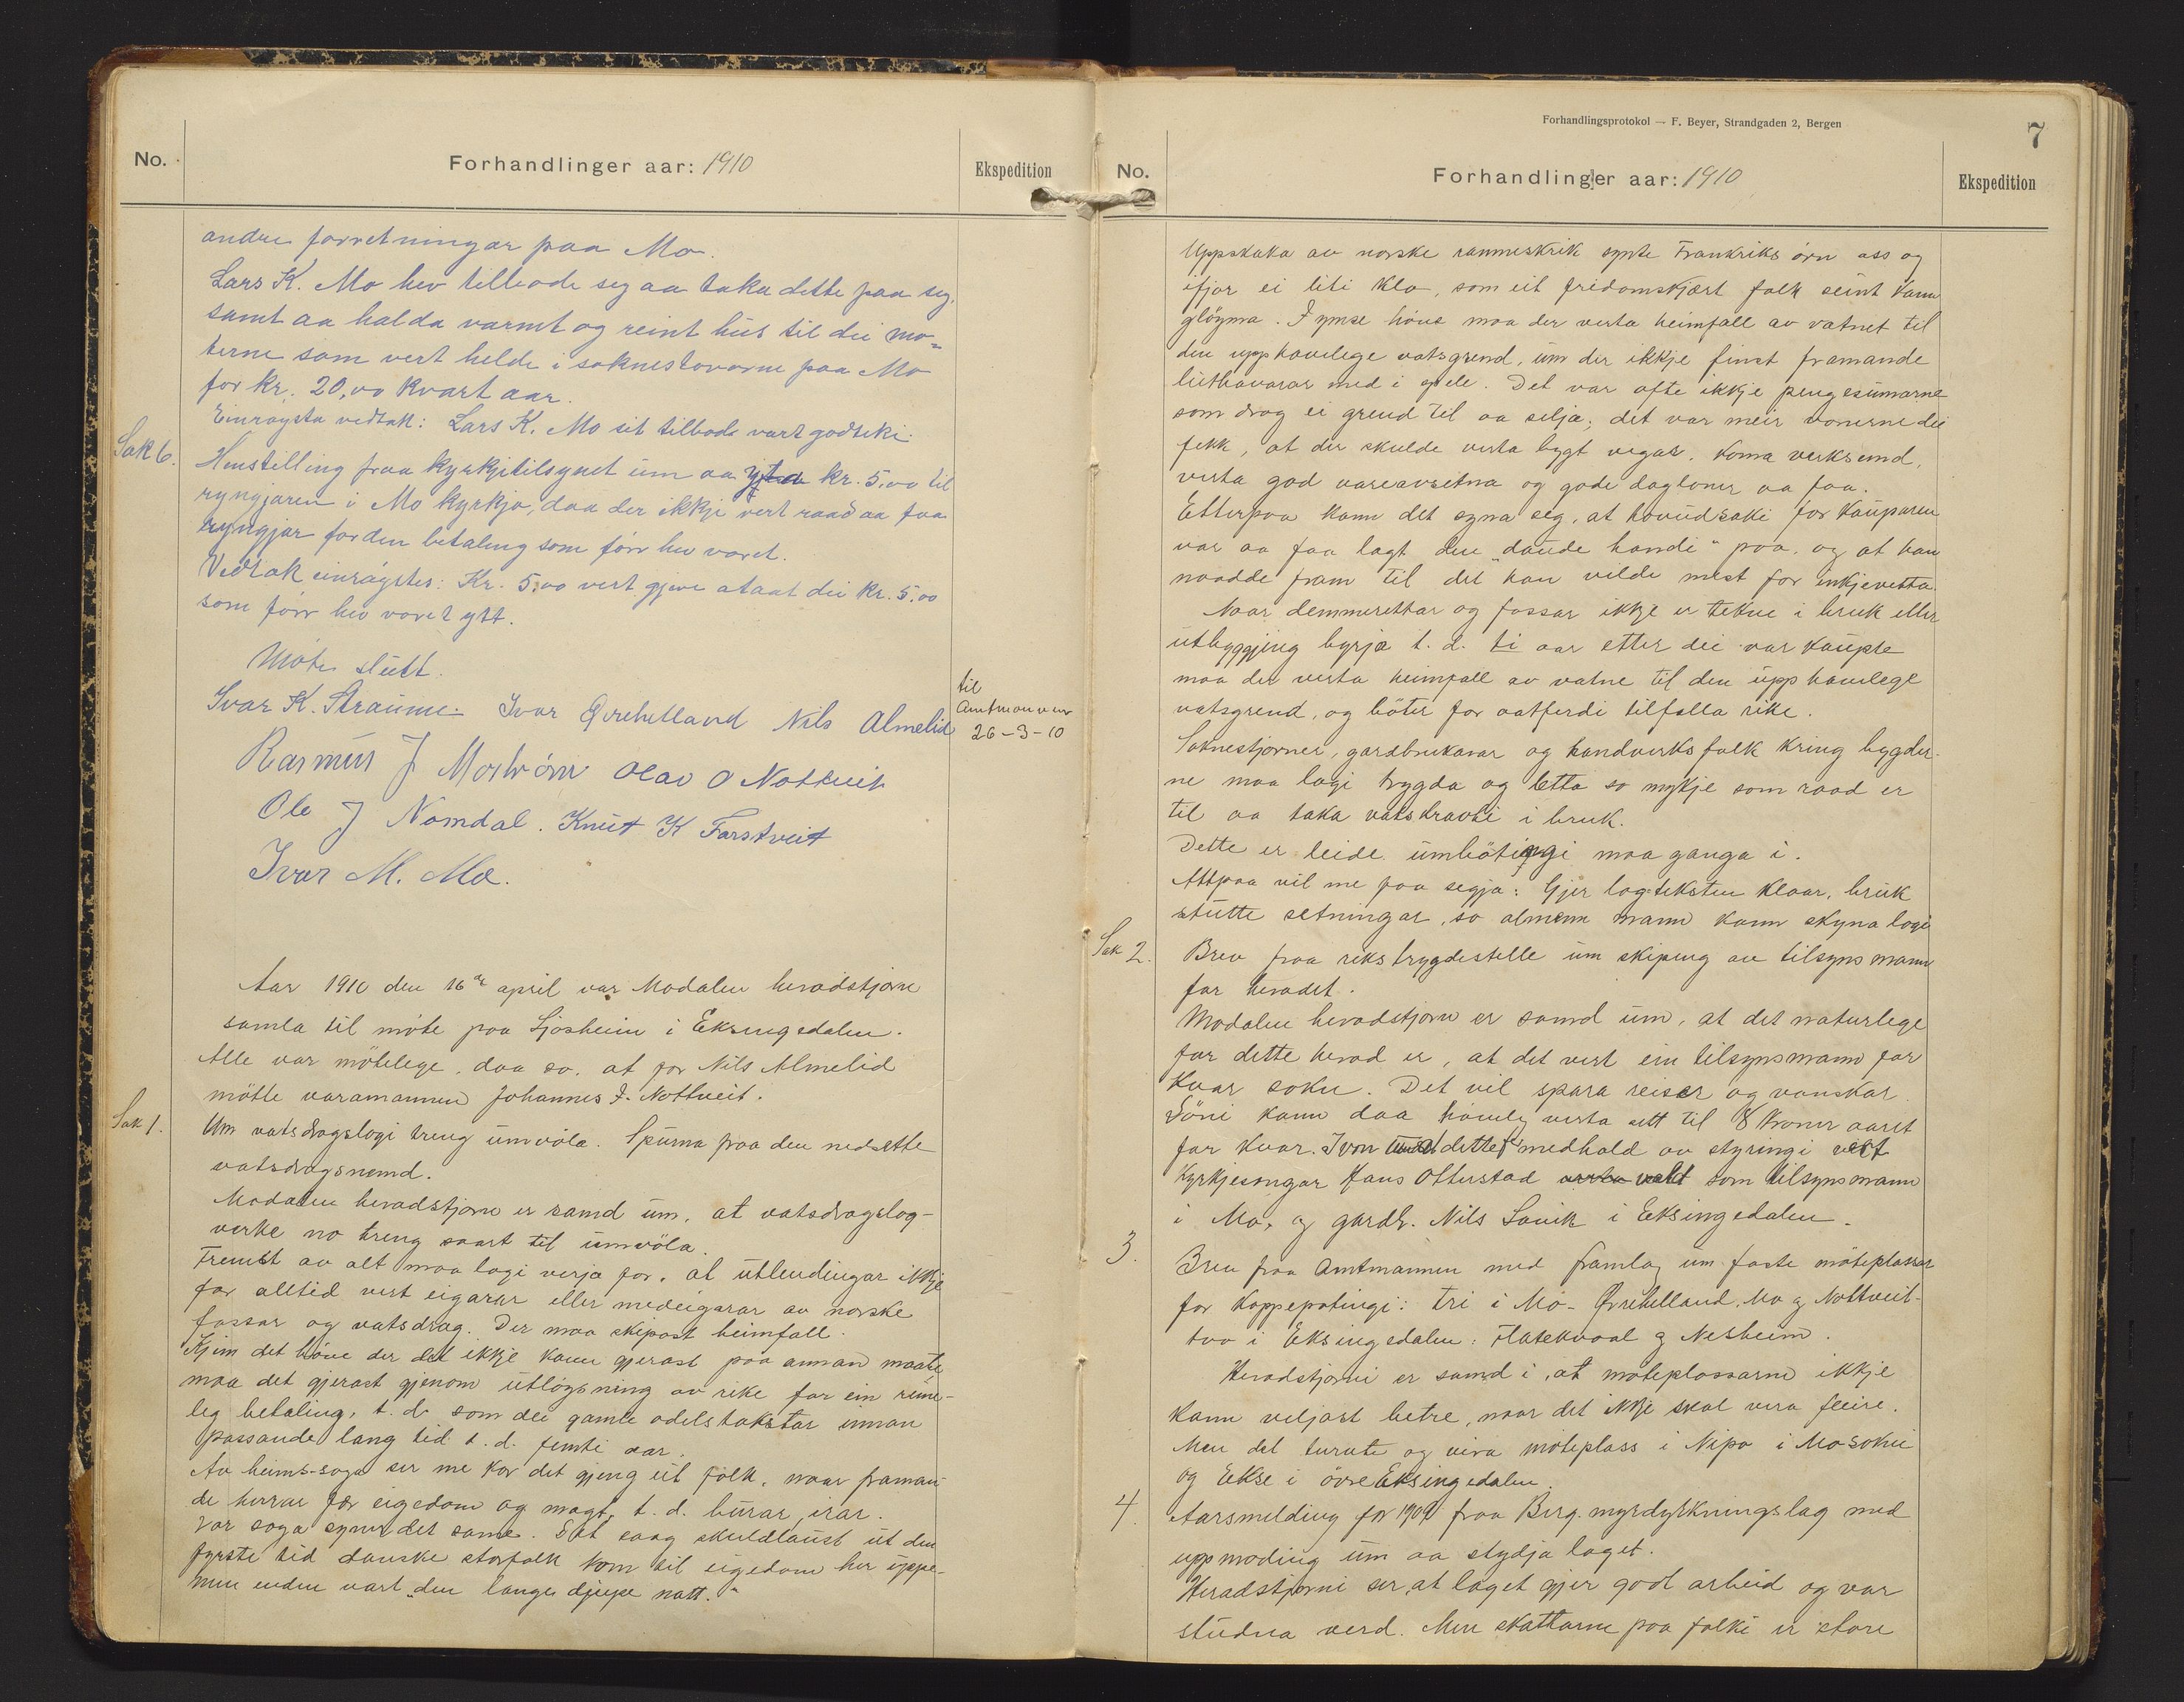 No.
Forhandlinger aar: 1910
Ekspedition
andre forretningar paa Mo.
Lars K. Mo hev tilbode seg aa taka dette paa seg,
samt aa halda varmt og reint hus til dei mø=
terne som vert helde i soknestovorne paa Mo
for kr. 20,00 kvart aar.
Einrøysta vedtak: Lars K. Mo sit tilbode vart godteki.
Sak 6.
Henstilling fraa kyrkjetilsynet um aa yta kr. 5,00 til
ryngjaren i Mo kyrkja, daa der ikkje vert raad aa faa
ryngjar for den betaling som førr hev voret.
Vedtak einrøystes: Kr. 5,00 vert gjeve attaat dei kr. 5,00
som førr hev voret ytt.
Møte slutt.
Ivar K. Straume. Ivar Øvrehelland Nils Almelid
Rasmus J Mostrøm Olav O Nottveit
Ole J Nomdal. Knut K Farstveit
Ivar M. Mo.
til
Amtmannen
26-3-10
Aar 1910 den 16de april var Modalen heradstjorn
samla til møte paa Sjosheim i Eksingedalen.
Alle var møtelege, daa so, at for Nils Almelid
møtte varamannen Johannes J. Nottveit.
Sak 1.
Um vatsdragslogi treng umvøla. Spurna fraa den nedsette
vatsdragsnemnd.
Modalen heradstjorn er samd um, at vatsdragslog-
verke no treng saart til umvøla.
Fremst av alt maa logi verja for, at utlendingar ikkje
for alltid vert eigarar eller medeigarar av norske
fossar og vatsdrag. Der maa skipast heimfall.
Kjem det høve der det ikkje kann gjerast paa annan maate,
maa det gjerast gjenom utløysning av rike for ein rime-
leg betaling, t. d. som dei gamle odelstakstar innan
passande lang tid t. d. femti aar.
Av heims-soga ser me kor det gjeng ut folk, naar framan-
de herrar fær eigedom og magt, t. d. burar, irar.
Vor soga syner det same. Det saag skuldlaust ut den
fyrste tid danske storfolk kom til eigedom her uppe-
men enden vart "den lange djupe natt."
Forhandlingsprotokol — F. Beyer, Strandgaden 2, Bergen
7
No.
Forhandlinger aar: 1910
Ekspedition
Uppskaka av norske ramneskrik synte Frankriks ørn oss og
ifjor ei liti klo, som eit fridomskjært folk seint kann
gløyma. I ymse høve maa der verta heimfall av vatnet til
den upphavelege vatsgrend, um der ikkje finst framande
luthavarar med i spele. Det var ofte ikkje pengesumarne
som drog ei grend til aa selja; det var meir vonerne dei
fekk, at der skulde verta bygt vegar, koma verksemd,
verta god vareavsetna og gode dagløner aa faa.
Etterpaa kann det syna seg, at hovudsaki for kauparen
var aa faa lagt den "daude handi" paa, og at han
naadde fram til det han vilde mest for inkjevetta.
Naar demmerettar og fossar ikkje er tekne i bruk eller
utbyggjing byrja t. d. ti aar etter dei var kaupte
maa der verta heimfall av vatne til den upphavlege
vatsgrend, og bøter for aatferdi tilfalla rike.
Soknestjorner, gardbrukarar og handverksfolk kring bygder-
ne maa logi trygda og letta so mykje som raad er
til aa taka vatskrafti i bruk.
Dette er leide umbøtingi maa ganga i.
Attpaa vil me faa segja: Gjer logteksten klaar, bruk
stutte setningar, so almenn mann kann skyna logi.
Sak 2.
Brev fraa rikstrygdestelle um skipeng av tilsynsmann
for heradet.
Modalen heradstjorn er samd um, at det naturlege
for dette herad er, at det vert ein tilsynsmann for
kvar sokn. Det vil spara reiser og vanskar.
Løni kann daa høveleg verta sett til 8 kroner aaret
for kvar. I von um dette medhald av styringi vert
kyrkjesongar Hans Otterstad verta vald som tilsynsmann
i Mo, og gardb. Nils Lavik i Eksingedalen.
3.
Brev fraa Amtmannen med framlag um faste møteplassar
for koppepotingi: tri i Mo- Øvrehelland, Mo og Nottveit-
tvo i Eksingedalen: Flatekvaal og Nesheim.
Heradstjorni er samd i, at møteplassarne ikkje
kann veljast betre, naar det ikkje skal vera fleire.
Men det turvte og vera møteplass i Nipo i Mosokni
og Eekse i øvre Eksingedalen.
4.
Aarsmelding for 1909 fraa Berg. myrdyrkningslag med
uppmoding um aa stydja laget.
Heradstjorni ser, at laget gjer godt arbeid og var
studna verd. Men skattarne paa folki er store